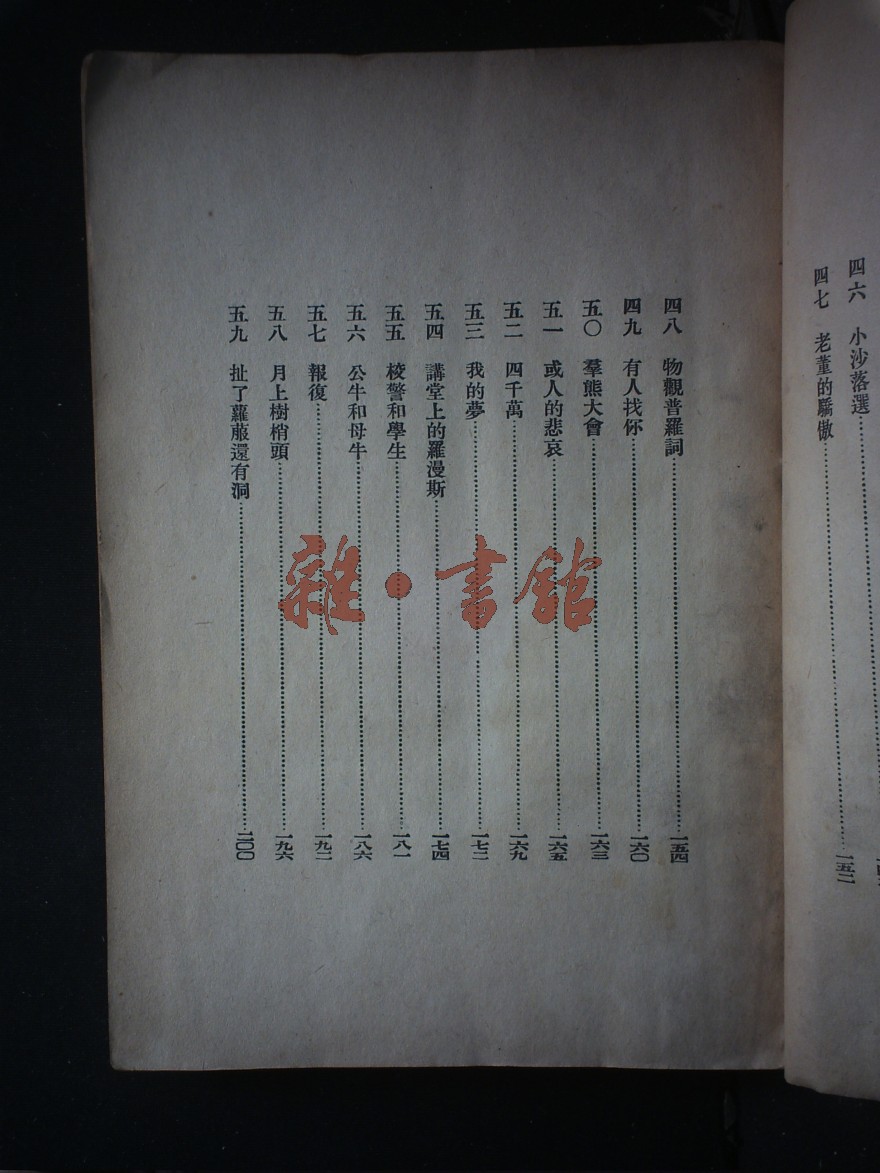 四六　小沙落選
四七　老董的驕傲……一五二
四八　物觀普羅詞……一五四
四九　有人找你……一六〇
五〇　羣熊大會……一六三
五一　或人的悲哀……一六五
五二　四千萬……一六九
五三　我的夢……一七二
五四　講堂上的羅漫斯……一七四
五五　校警和學生……一八一
五六　公牛和母牛……一八六
五七　報復……一九二
五八　月上樹梢頭……一九六
五九　扯了蘿蔔還有洞……二〇〇
雜·書館